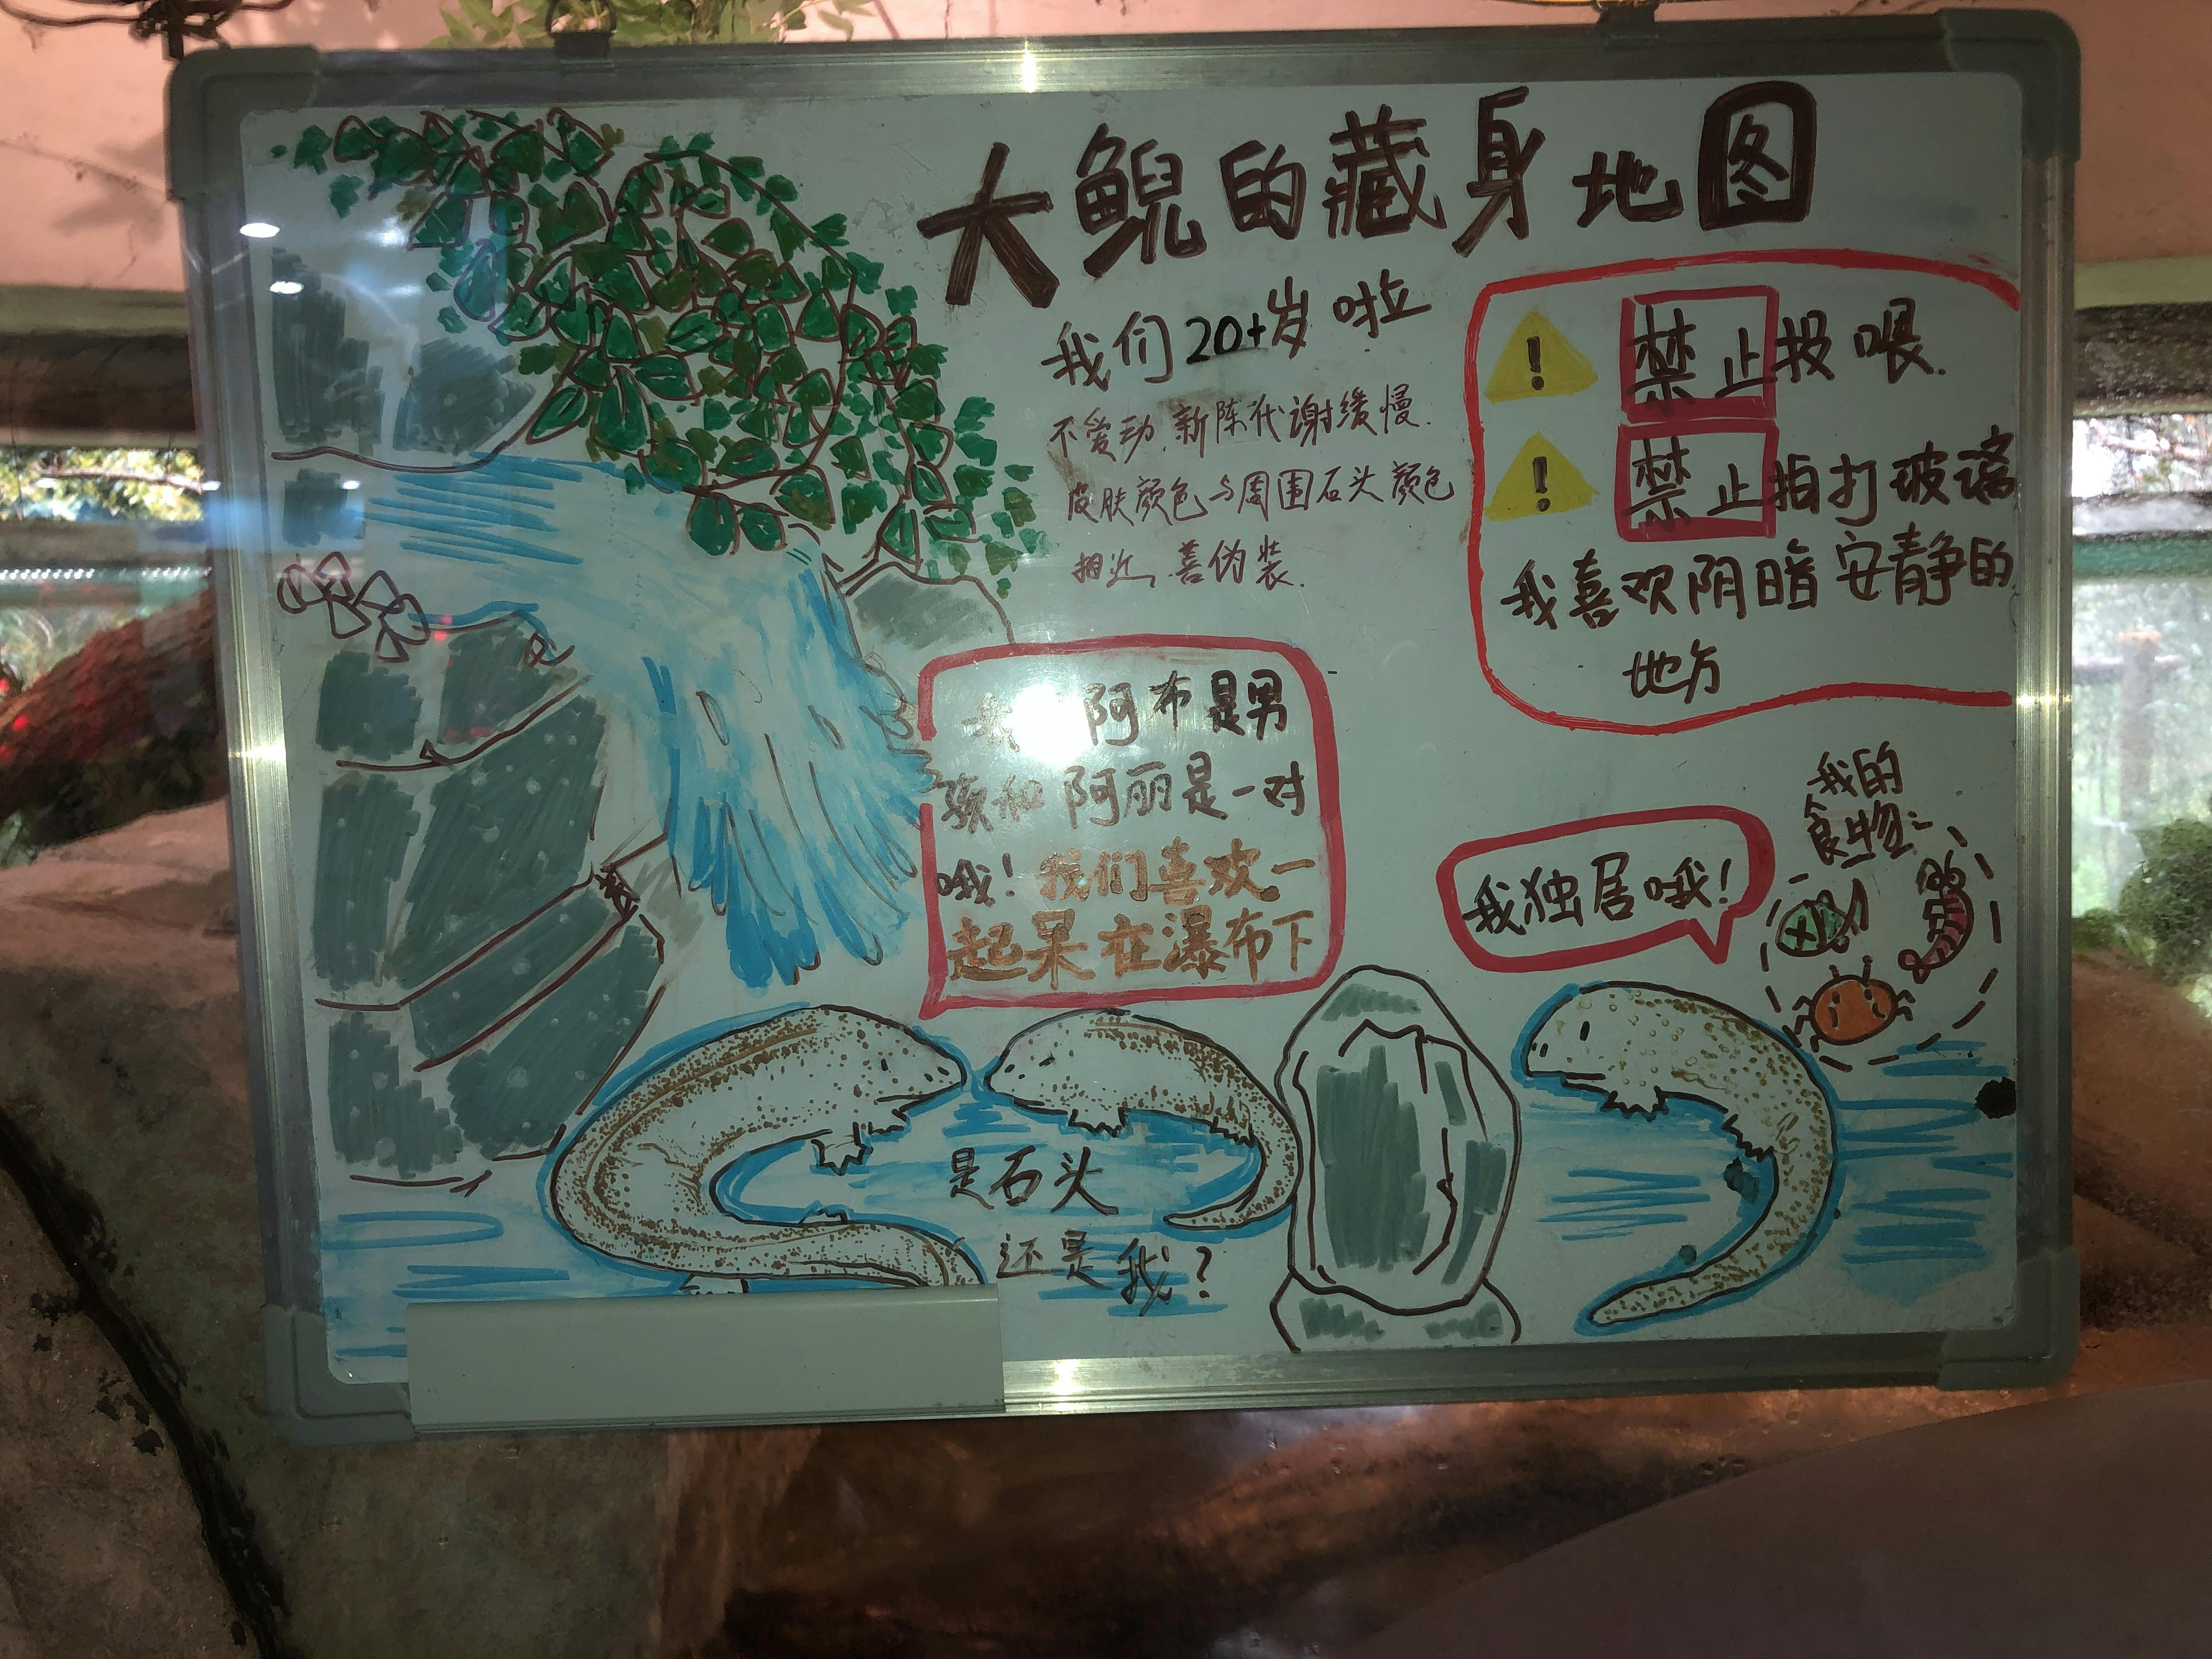 大鲵的藏身地图
我们20+岁啦
不爱动,新陈代谢缓慢.
皮肤颜色与周围石头颜色
相近,善伪装.
禁止投喂.
禁止拍打玻璃
我喜欢阴暗安静的
地方
我 阿布是男
孩和阿丽是一对
哦!我们喜欢一
起呆在瀑布下
我独居哦!
我的
食物:
是石头
还是我?